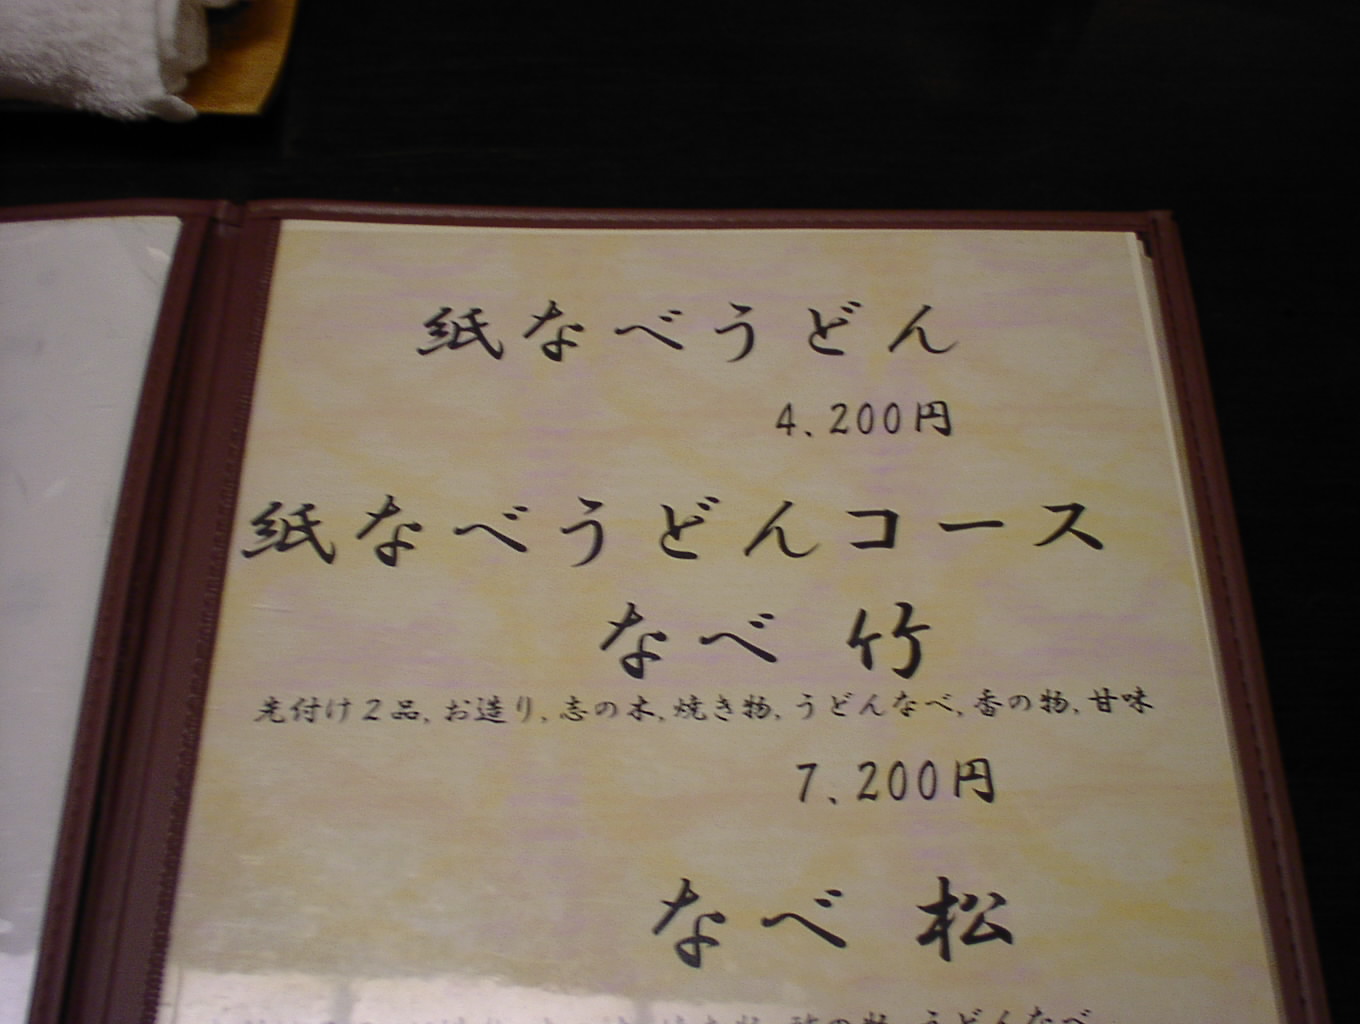 紙なべうどん
4、200円
紙なべうどんコース
なべ 竹
先付け2品,お造り,志の木,焼き物,うどんなべ,香の物,甘味
7、200円
なべ 松
うどんなべ